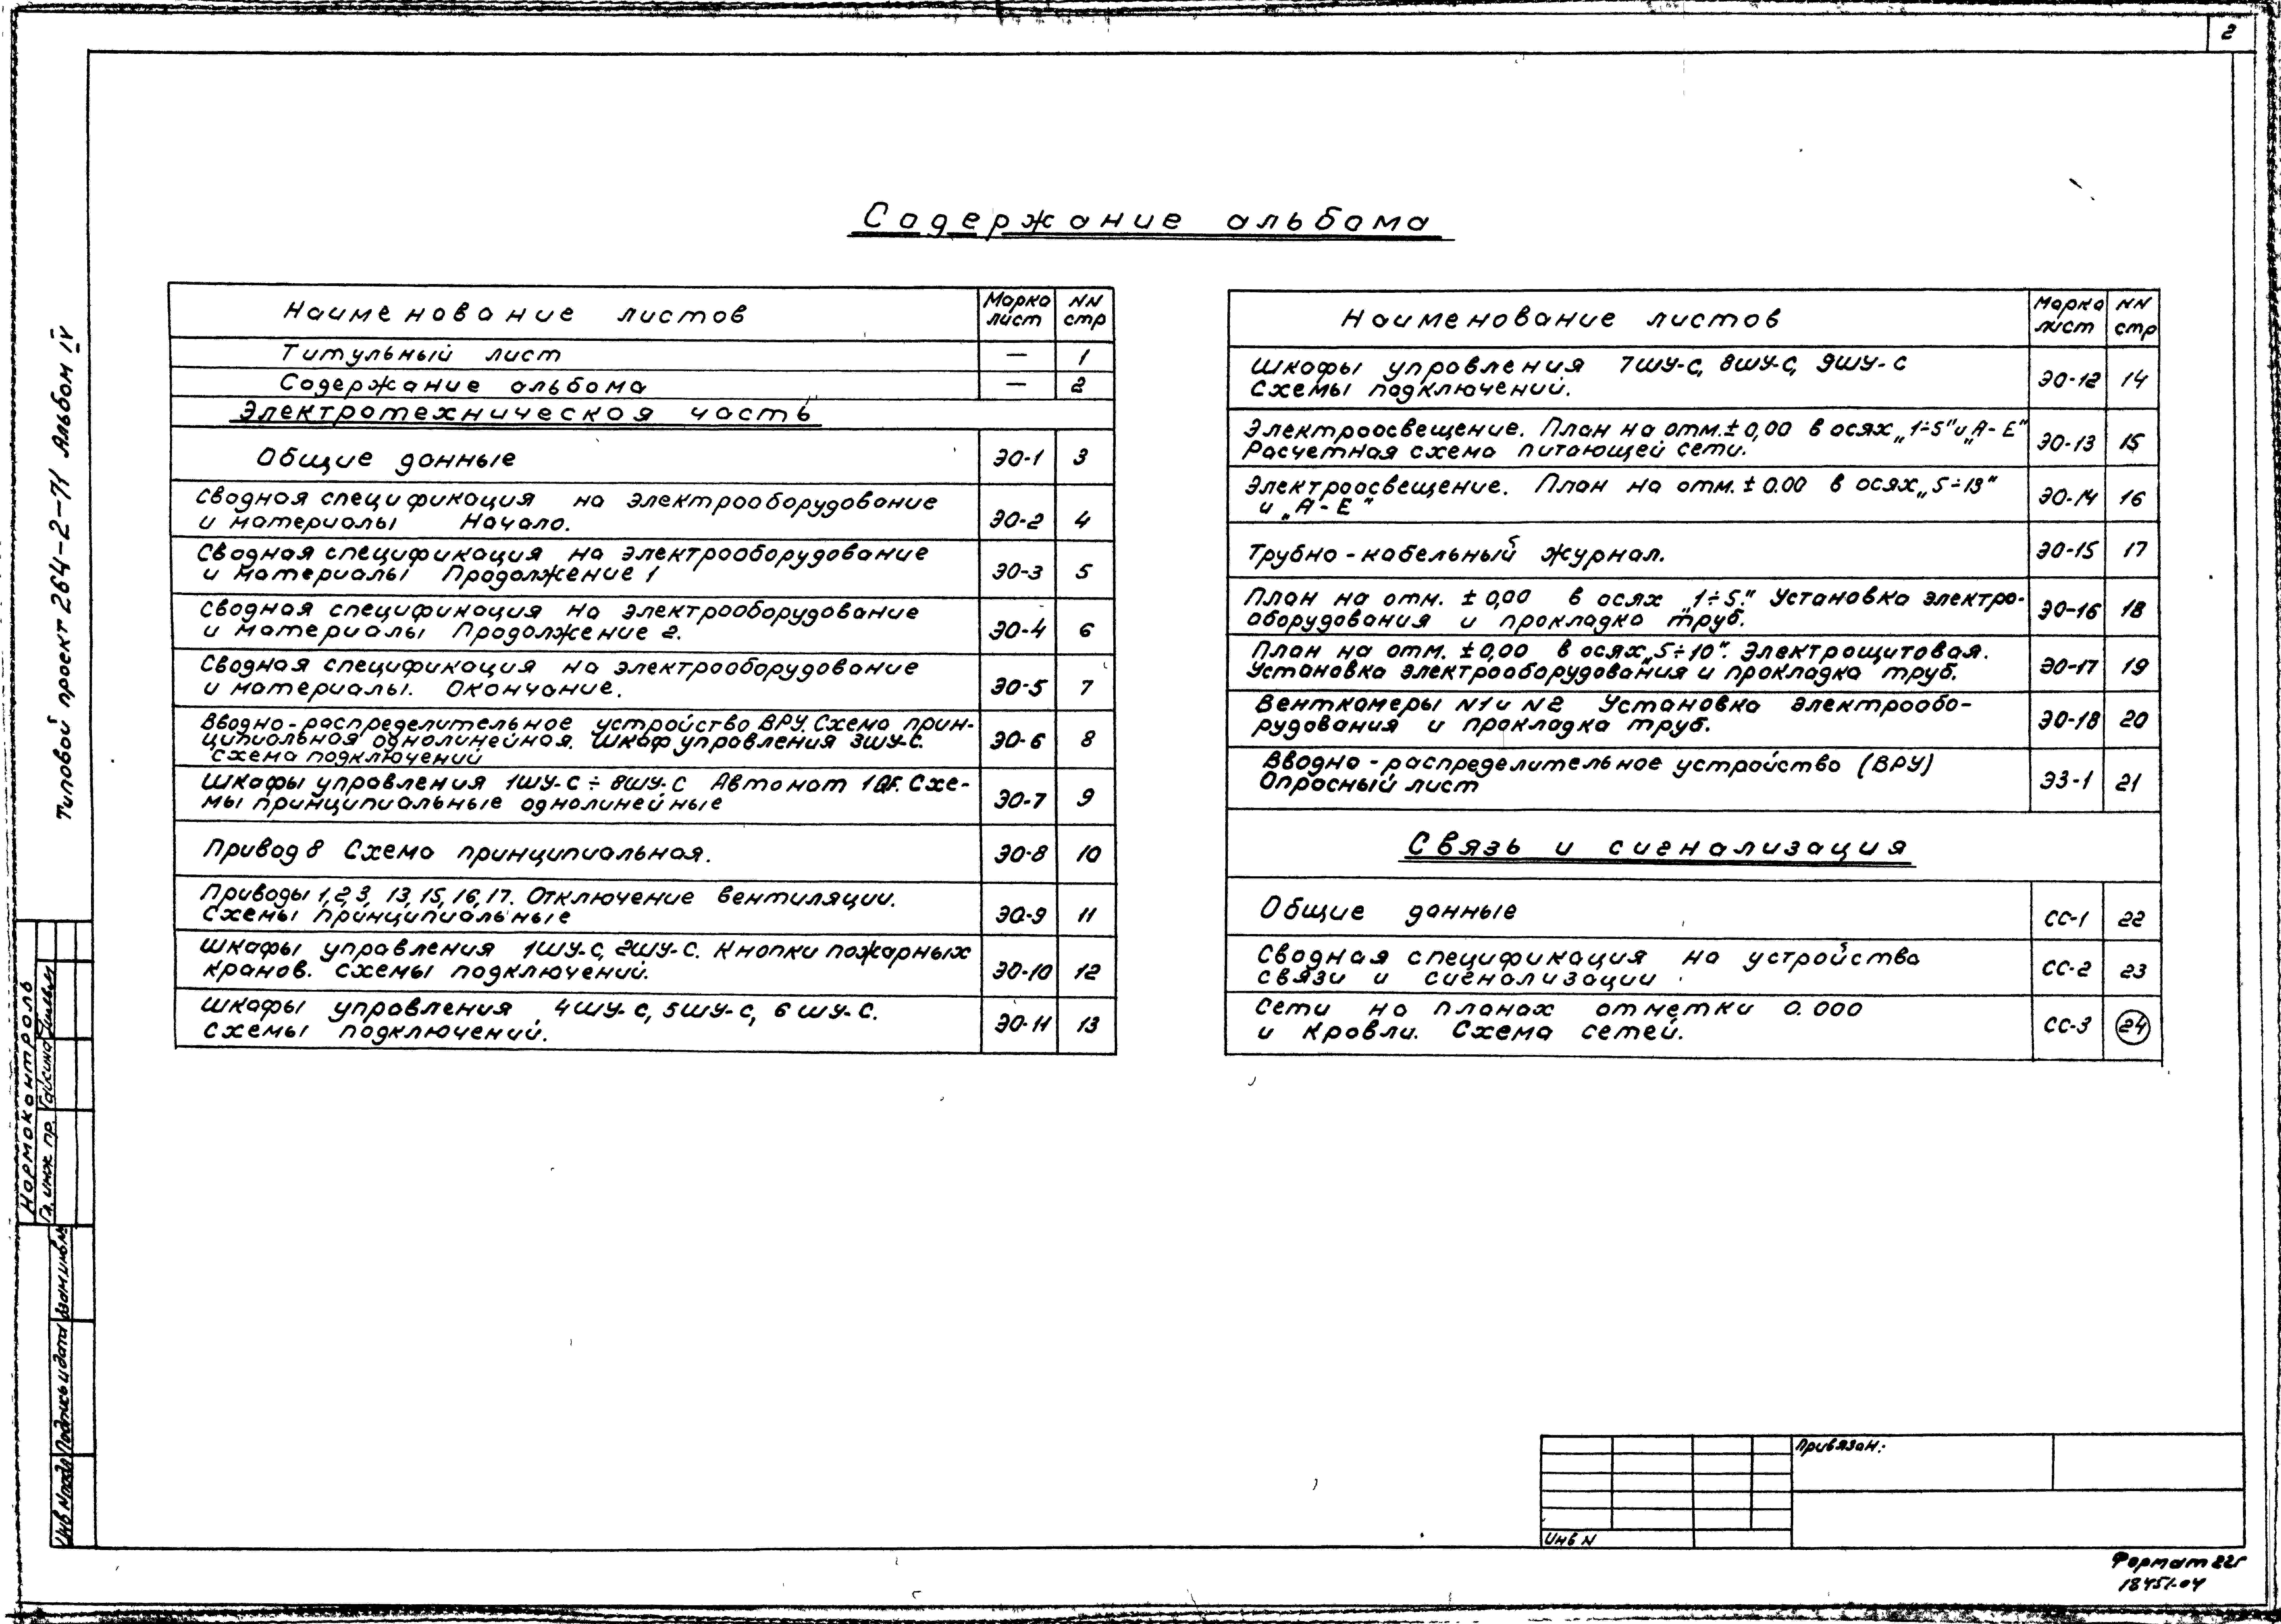 2
Содержание альбома
Наименование листов Марка лист NN стр
Титульный лист — 1
Содержание альбома — 2
Электротехническая часть
Общие данные ЭО-1 3
Сводная спецификация на электрооборудование
и материалы Начало. ЭО-2 4
Сводная спецификация на электрооборудование
и материалы Продолжение 1 ЭО-3 5
Сводная спецификация на электрооборудование
и материалы Продолжение 2. ЭО-4 6
Сводная спецификация на электрооборудование
и материалы. Окончание. ЭО-5 7
Вводно-распределительное устройство ВРУ. Схема прин-
ципиальная однолинейная. Шкаф управления 3ШУ-С. ЭО-6 8
Схема подключений
Шкафы управления 1ШУ-С ÷ 8ШУ-С Автомат 1QF. Схе-
мы принципиальные однолинейные ЭО-7 9
Привод 8 Схема принципиальная. ЭО-8 10
Приводы 1,2,3, 13,15,16,17. Отключение вентиляции.
Схемы принципиальные ЭО-9 11
Шкафы управления 1ШУ-С, 2ШУ-С. Кнопки пожарных
кранов. Схемы подключений. ЭО-10 12
Шкафы управления 4ШУ-С, 5ШУ-С, 6ШУ-С.
Схемы подключений. ЭО-11 13
Наименование листов Марка лист NN стр
Шкафы управления 7ШУ-С, 8ШУ-С, 9ШУ-С
Схемы подключений. ЭО-12 14
Электроосвещение. План на отм. ± 0,00 в осях „1÷5" и „А-Е"
Расчетная схема питающей сети. ЭО-13 15
Электроосвещение. План на отм. ± 0.00 в осях „5÷13"
и „А-Е" ЭО-14 16
Трубно-кабельный журнал. ЭО-15 17
План на отм. ± 0,00 в осях „1÷5". Установка электро-
оборудования и прокладка труб. ЭО-16 18
План на отм. ± 0,00 в осях „5÷10". Электрощитовая.
Установка электрооборудования и прокладка труб. ЭО-17 19
Венткамеры N1 и N2 Установка электрообо-
рудования и прокладка труб. ЭО-18 20
Вводно-распределительное устройство (ВРУ)
Опросный лист ЭЗ-1 21
Связь и сигнализация
Общие данные СС-1 22
Сводная спецификация на устройства
связи и сигнализации СС-2 23
Сети на планах отметки 0.000
и кровли. Схема сетей. СС-3 24
Типовой проект 264-2-71 Альбом IV
Нормоконтроль
Гл. инж. пр.
Взам инв N
Подпись и дата
Инв N подл
Привязан:
Инв N
Формат 22г
18451-04